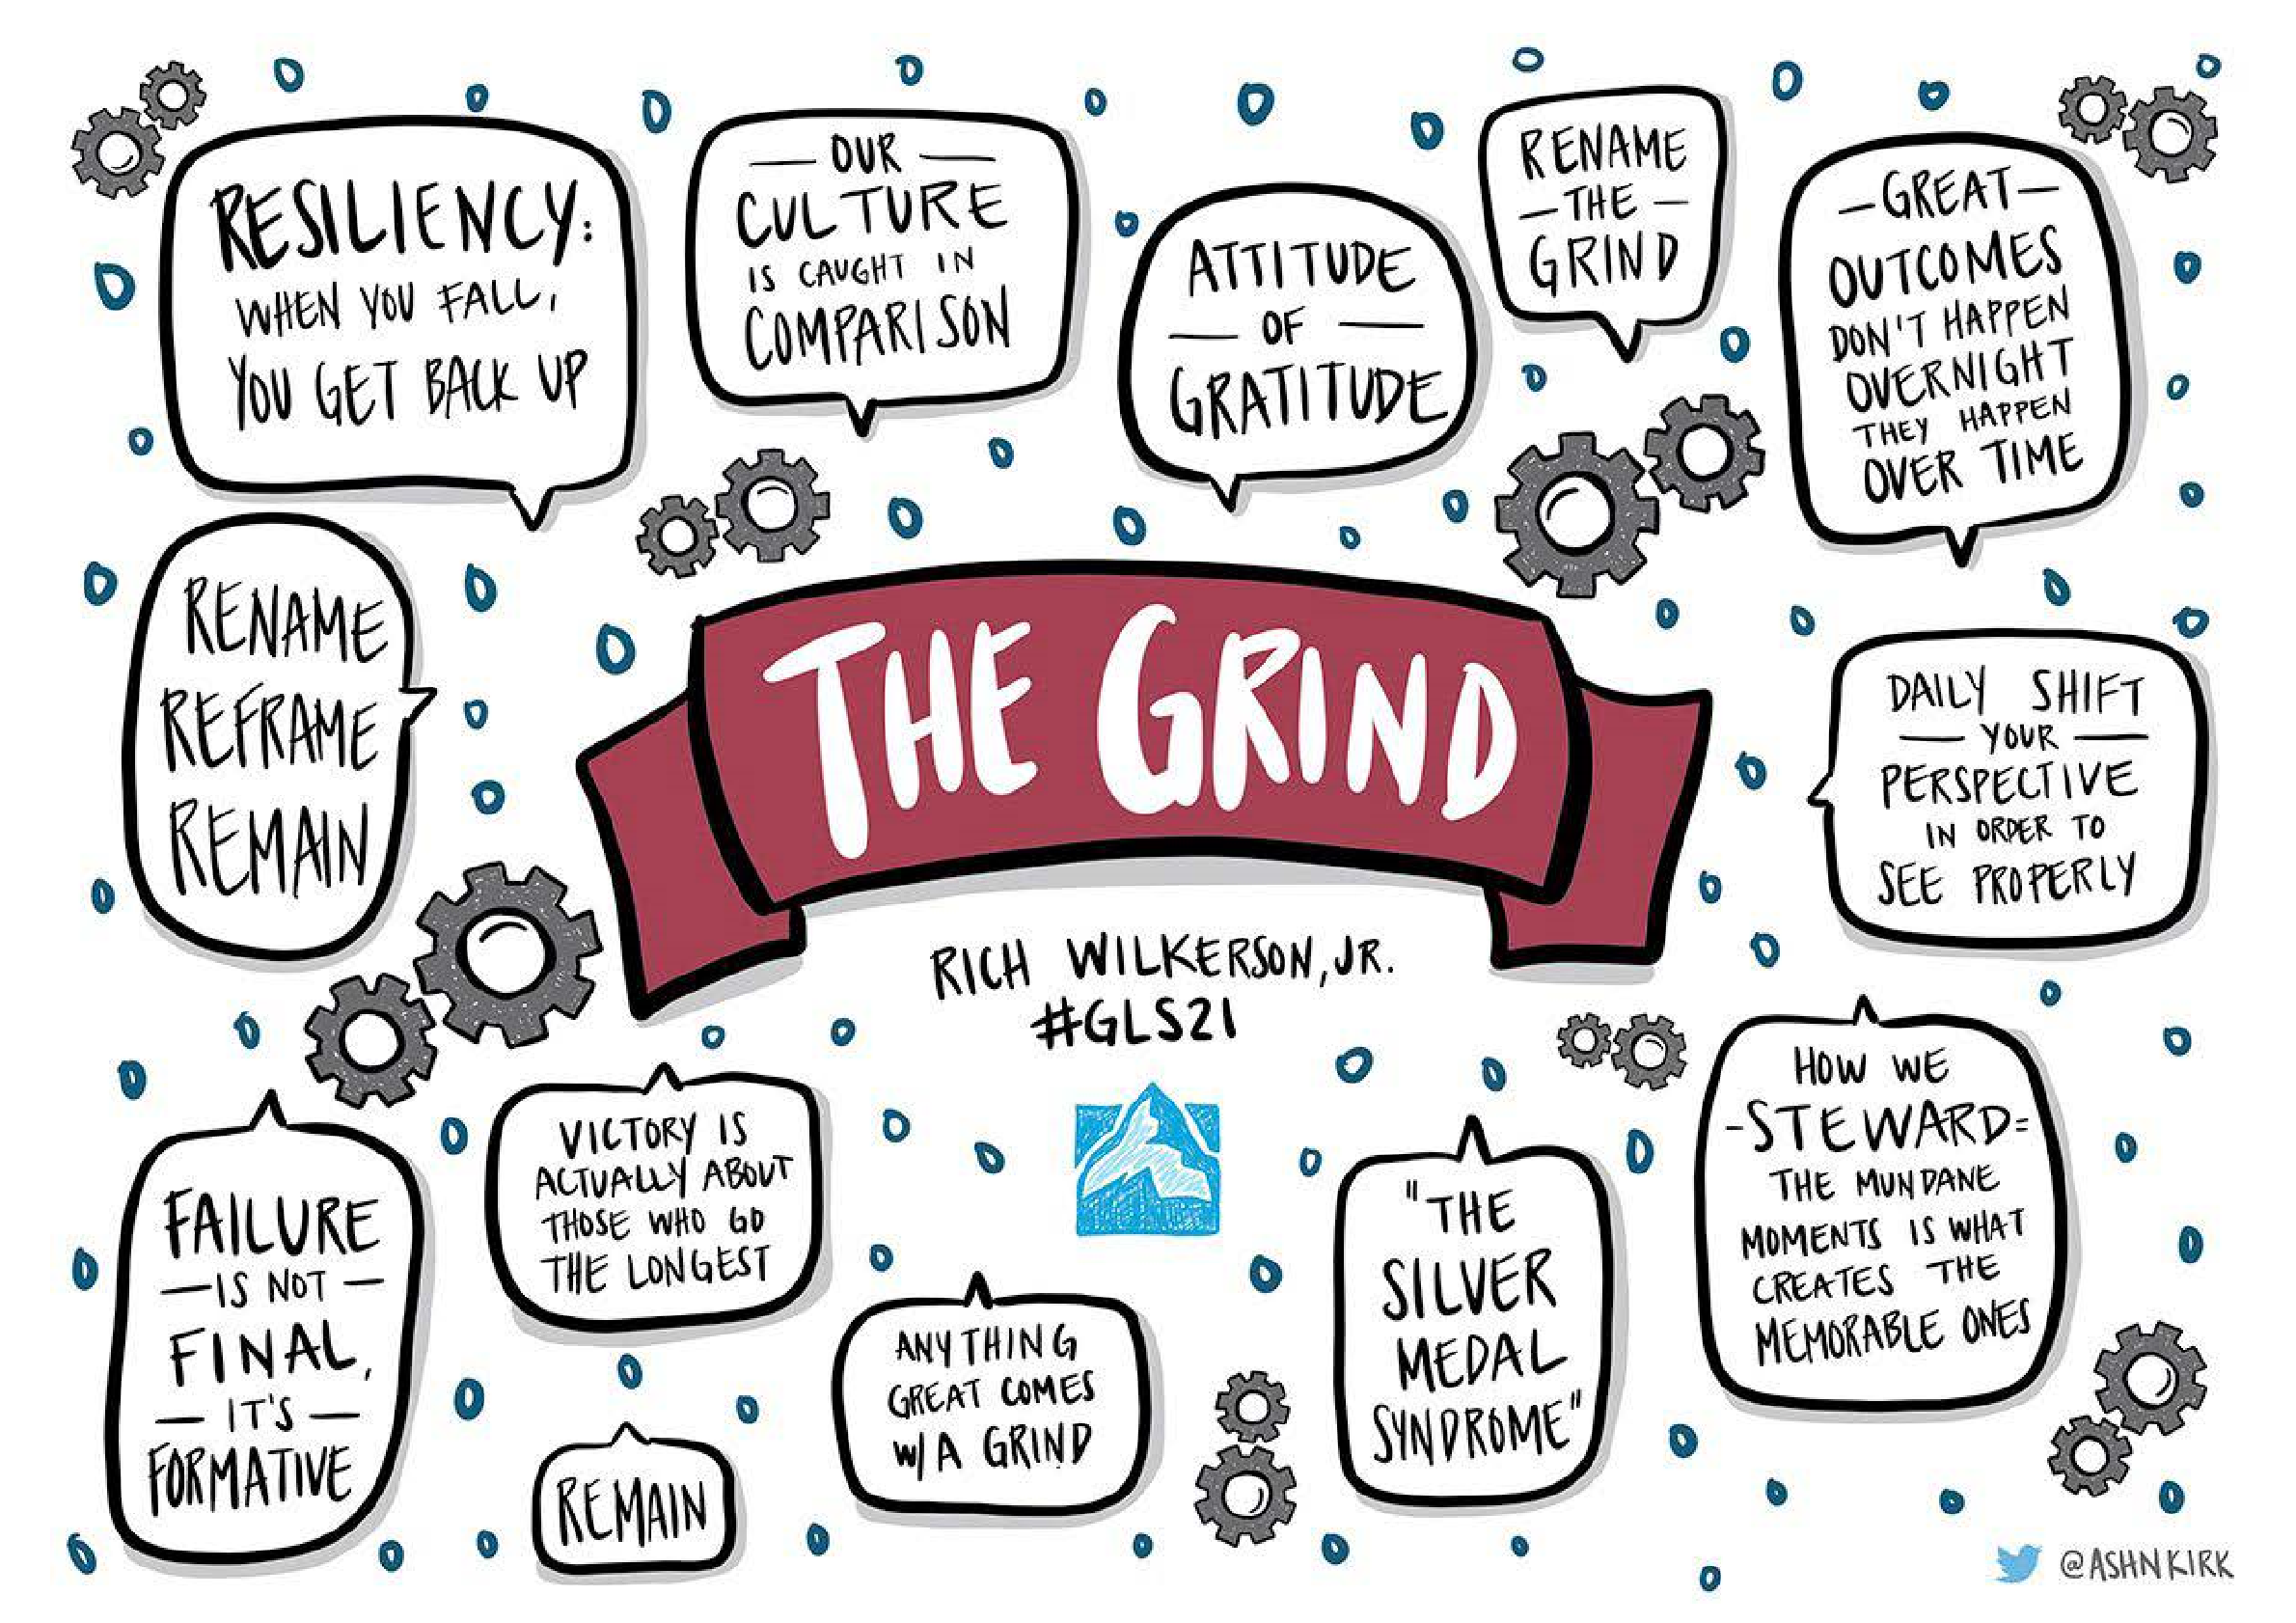 RESILIENCY:
WHEN YOU FALL,
YOU GET BACK UP
OUR
CULTURE
IS CAUGHT IN
COMPARISON
ATTITUDE
OF
GRATITUDE
RENAME
THE
GRIND
GREAT
OUTCOMES
DON'T HAPPEN
OVERNIGHT
THEY HAPPEN
OVER TIME
RENAME
REFRAME
REMAIN
THE GRIND
RICH WILKERSON, JR.
#GLS21
DAILY SHIFT
YOUR
PERSPECTIVE
IN ORDER TO
SEE PROPERLY
FAILURE
IS NOT
FINAL,
IT'S
FORMATIVE
VICTORY IS
ACTUALLY ABOUT
THOSE WHO GO
THE LONGEST
REMAIN
ANYTHING
GREAT COMES
W/A GRIND
"THE
SILVER
MEDAL
SYNDROME"
HOW WE
-STEWARD=
THE MUNDANE
MOMENTS IS WHAT
CREATES THE
MEMORABLE ONES
@ASHNKIRK